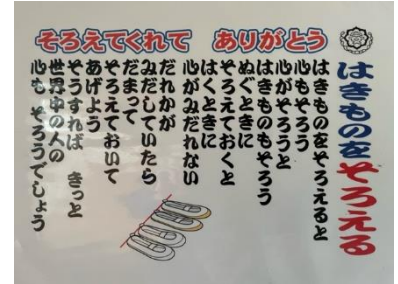 そろえてくれて ありがとう
はきものをそろえる
はきものをそろえると
心もそろう
心がそろうと
はきものもそろう
ぬぐときに
そろえておくと
はくときに
心がみだれない
だれかが
みだしていたら
だまって
そろえておいて
あげよう
そうすれば きっと
世界中の人の
心も そろうでしょう